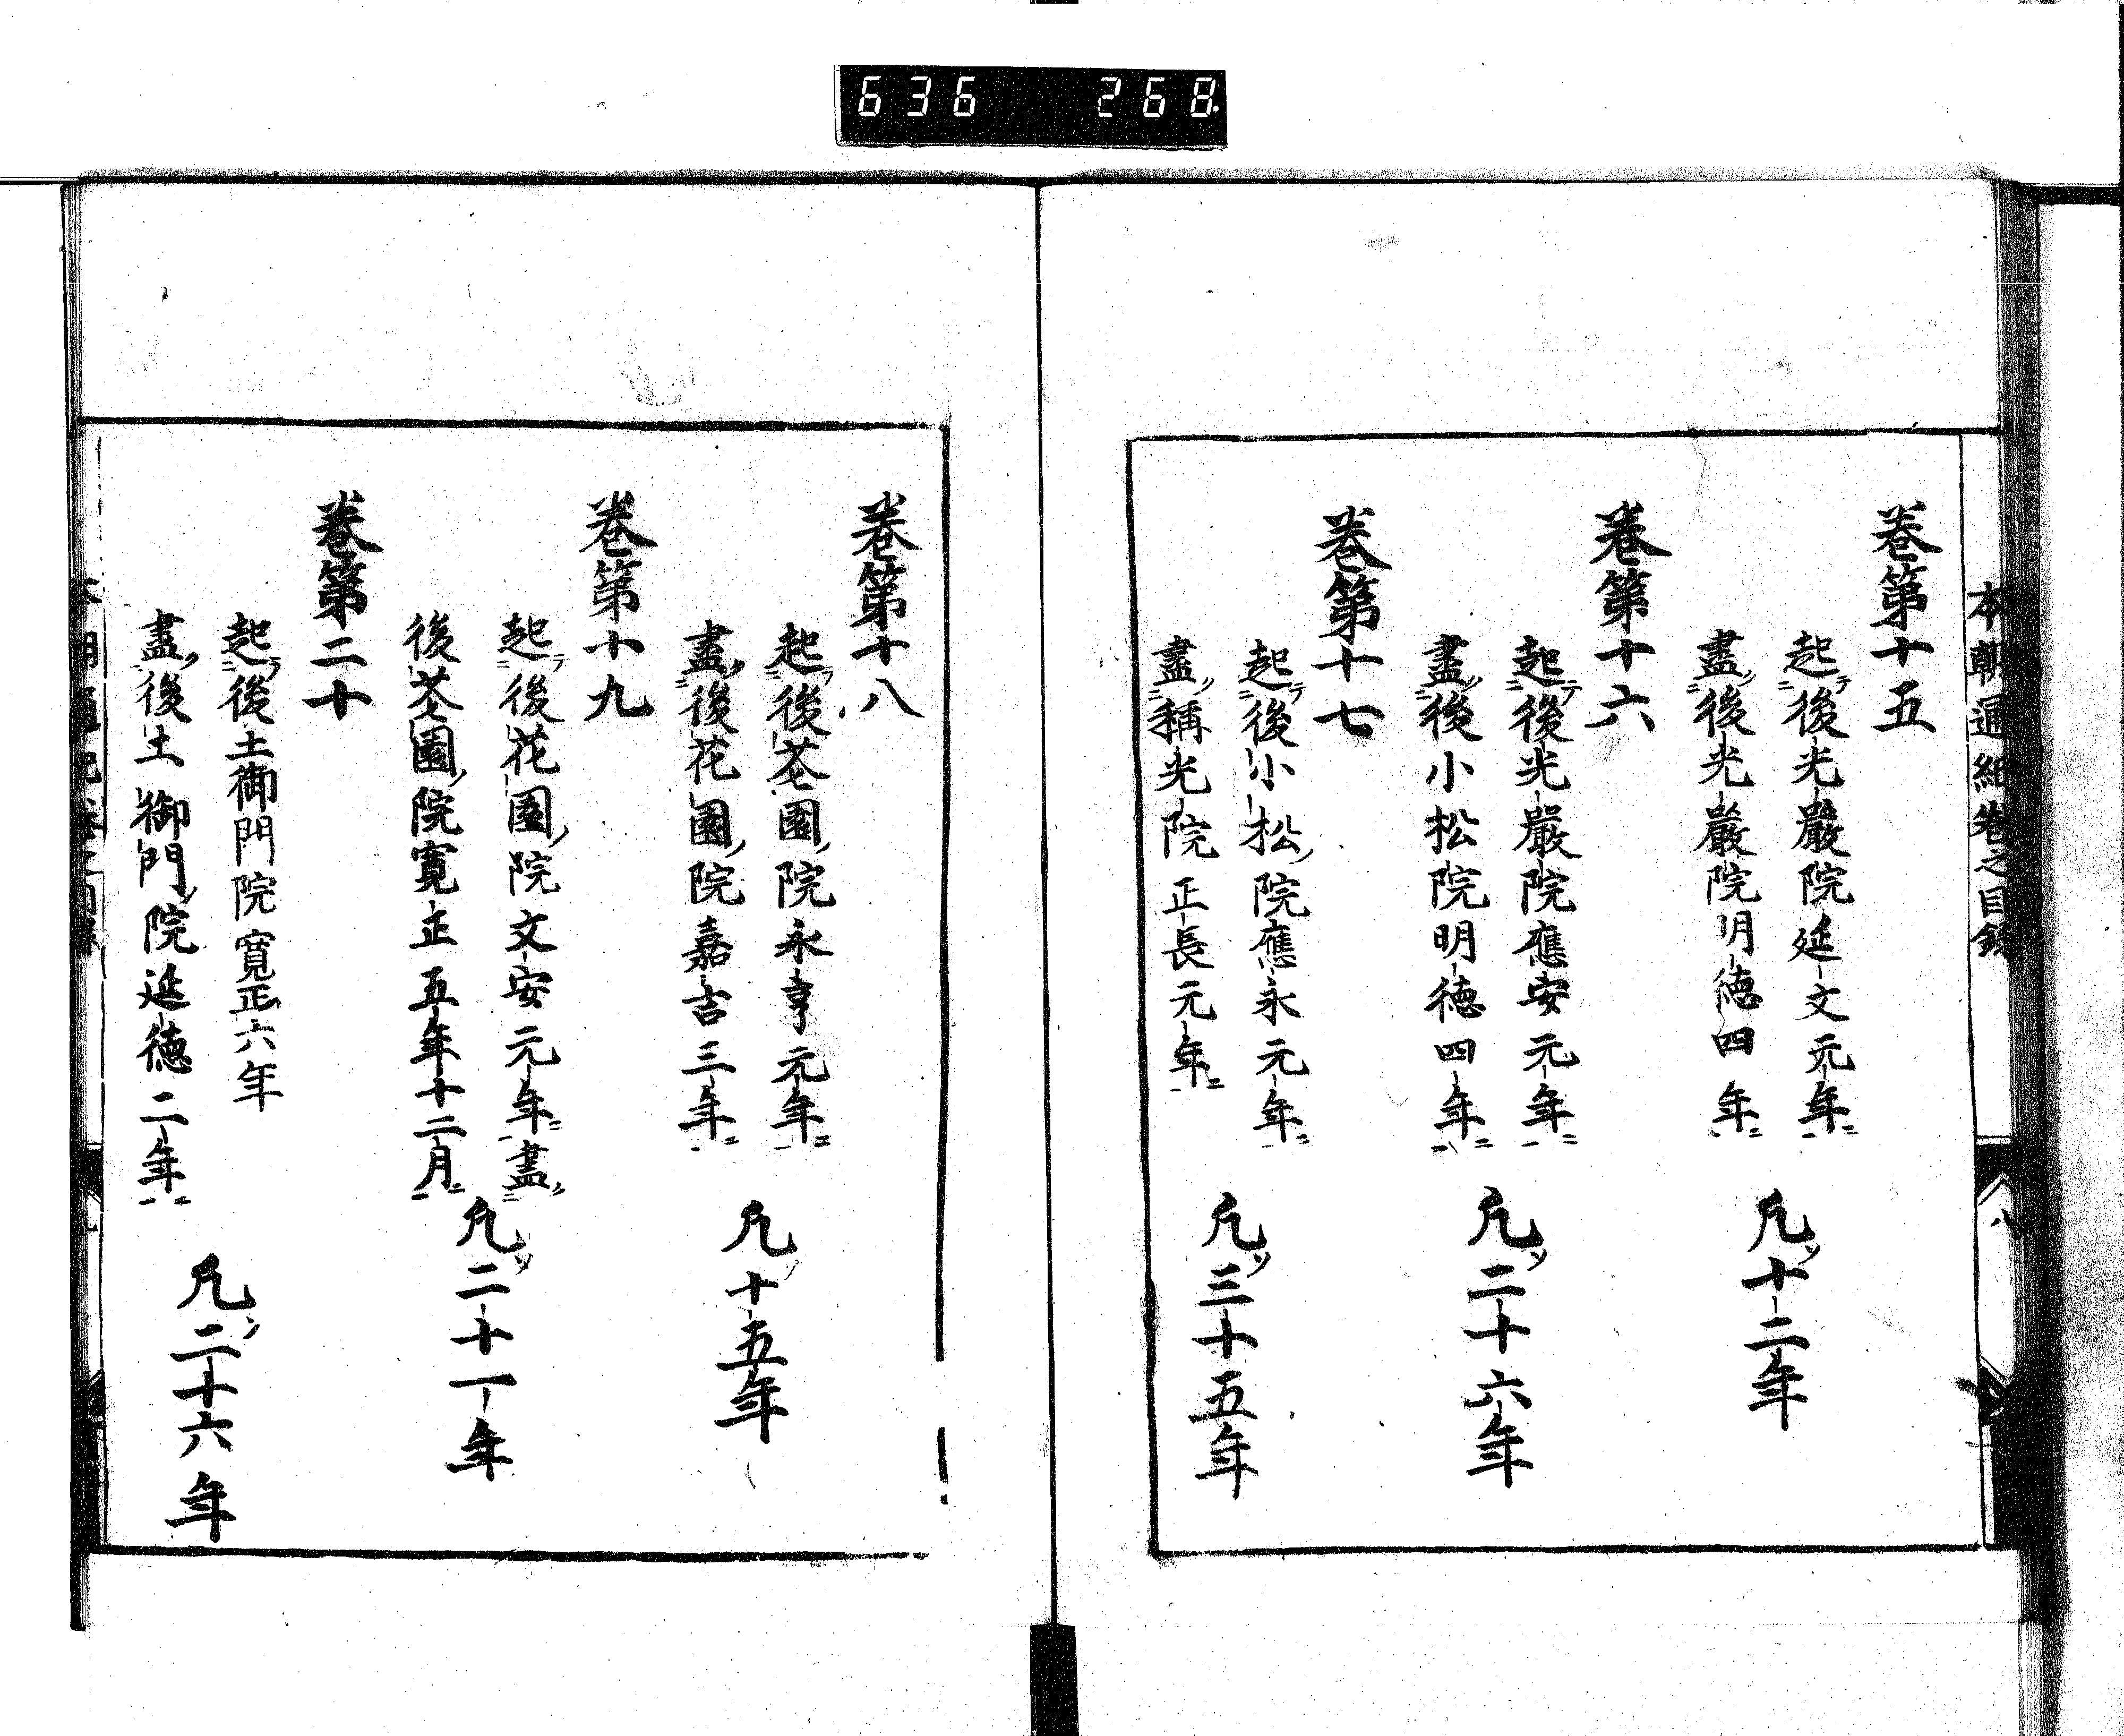 636 268
本朝通紀卷之目錄
八
卷第十五
起後光嚴院延文元年
盡後光嚴院明徳四年
凡十二年
卷第十六
起後光嚴院應安元年
盡後小松院明徳四年
凡二十六年
卷第十七
起後小松院應永元年
盡稱光院正長元年
凡三十五年
卷第十八
起後苍園院永享元年
盡後花園院嘉吉三年
凡十五年
卷第十九
起後花園院文安元年盡
後苍園院寛正五年十二月
凡二十一年
卷第二十
起後土御門院寛正六年
盡後土御門院延徳二年
凡二十六年